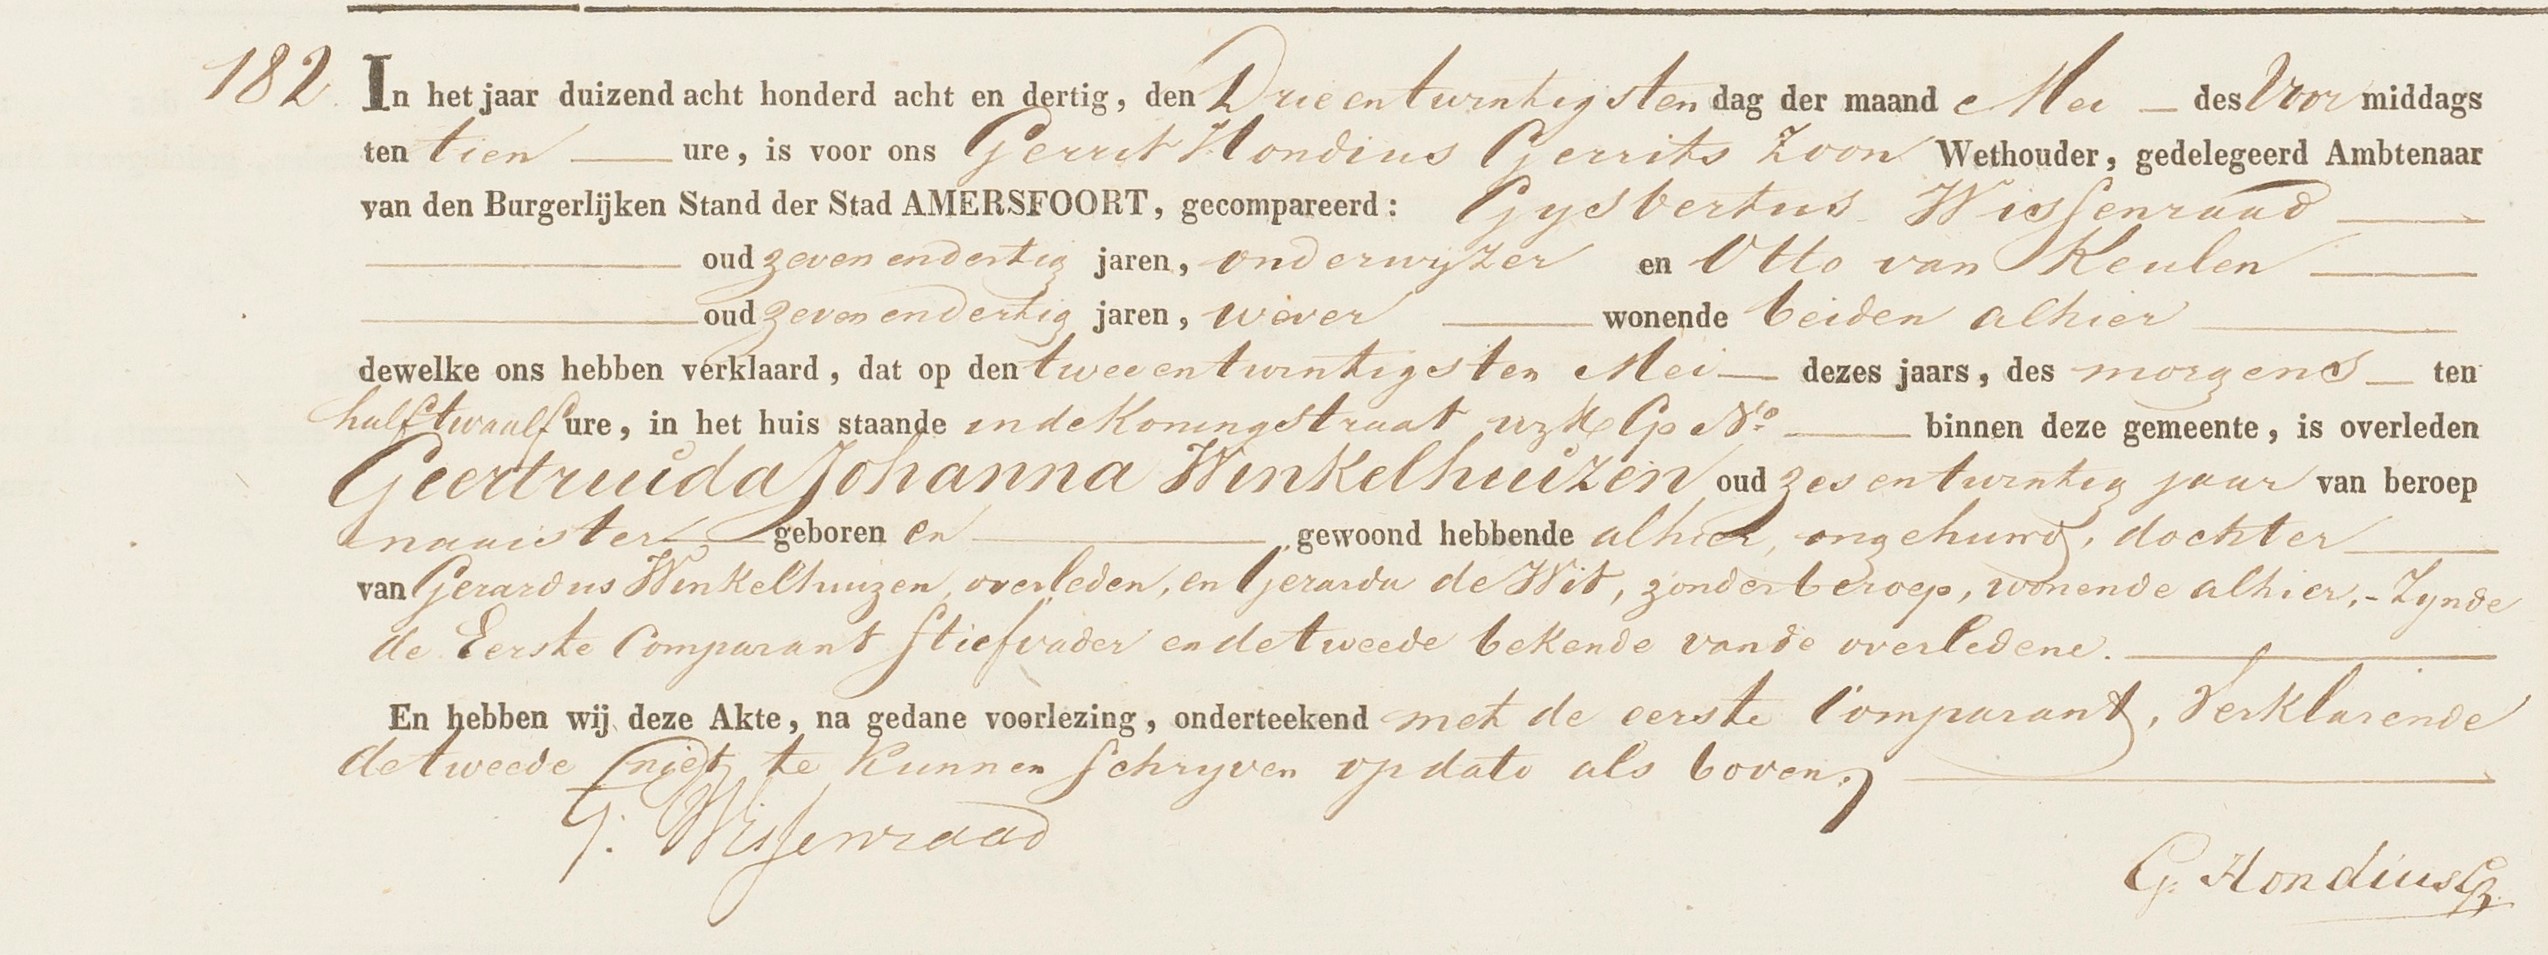 182. In het jaar duizend acht honderd acht en dertig, den Drieentwintigsten dag der maand Mei des Voor middags
ten tien ure, is voor ons Gerrit Hondius Gerrits Zoon Wethouder, gedelegeerd Ambtenaar
van den Burgerlijken Stand der Stad AMERSFOORT, gecompareerd: Gysbertus Wissenraad
oud zevenendertig jaren, onderwyzer en Otto van Keulen
oud zevenendertig jaren, wever wonende beiden alhier
dewelke ons hebben verklaard, dat op den tweeentwintigsten Mei dezes jaars, des morgens ten
half twaalf ure, in het huis staande in de Koningstraat No. binnen deze gemeente, is overleden
Geertruida Johanna Winkelhuizen oud zesentwintig jaar van beroep
naaister geboren en gewoond hebbende alhier, ongehuwd, dochter
van Gerardus Winkelhuizen, overleden, en Gerarda de Wit, zonder beroep, wonende alhier, - Zynde
de Eerste Comparant Stiefvader en de tweede bekende van de overledene.
En hebben wij deze Akte, na gedane voorlezing, onderteekend met de eerste Comparant, Verklarende
de tweede niet te kunnen schryven op dato als boven.
G. Wissenraad
G. Hondius Gz.